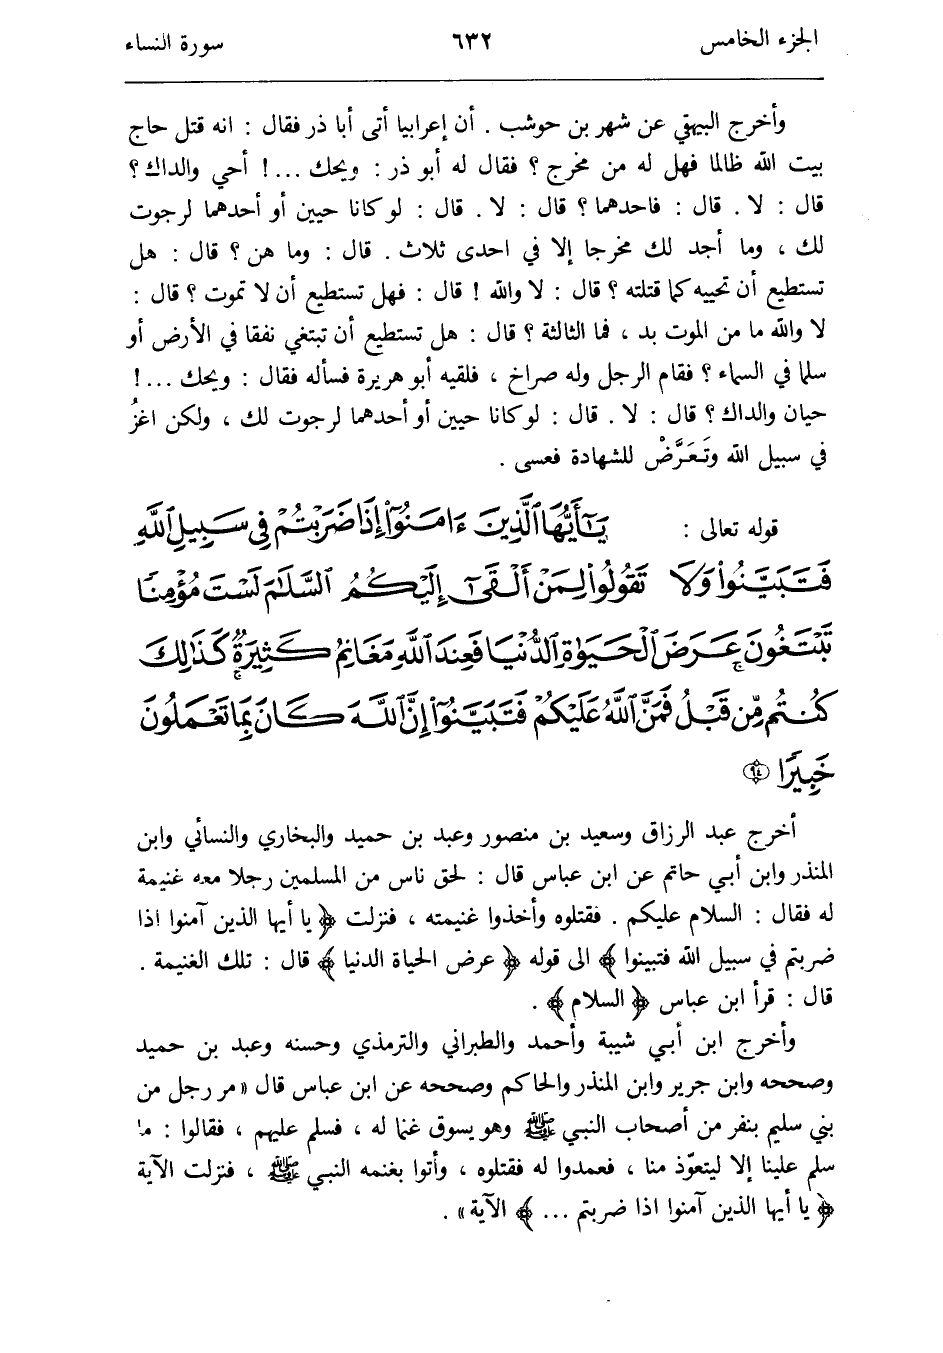 الجزء الخامس ٦٣٢ سورة النساء
وأخرج البيهقي عن شهر بن حوشب . أن إعرابيا أتى أبا ذر فقال : انه قتل حاج
بيت الله ظالما فهل له من مخرج ؟ فقال له أبو ذر : ويحك ...! أحي والداك ؟
قال : لا . قال : فاحدهما ؟ قال : لا . قال : لو كانا حيين أو أحدهما لرجوت
لك ، وما أجد لك مخرجا إلا في احدى ثلاث . قال : وما هن ؟ قال : هل
تستطيع أن تحييه كما قتلته ؟ قال : لا والله ! قال : فهل تستطيع أن لا تموت ؟ قال :
لا والله ما من الموت بد ، فما الثالثة ؟ قال : هل تستطيع أن تبتغي نفقا في الأرض أو
سلما في السماء ؟ فقام الرجل وله صراخ ، فلقيه أبو هريرة فسأله فقال : ويحك ...!
حيان والداك ؟ قال : لا . قال : لو كانا حيين أو أحدهما لرجوت لك ، ولكن اغزُ
في سبيل الله وتَعَرَّضْ للشهادة فعسى .
قوله تعالى : يَٰٓأَيُّهَا ٱلَّذِينَ ءَامَنُوٓا۟ إِذَا ضَرَبْتُمْ فِى سَبِيلِ ٱللَّهِ
فَتَبَيَّنُوا۟ وَلَا تَقُولُوا۟ لِمَنْ أَلْقَىٰٓ إِلَيْكُمُ ٱلسَّلَٰمَ لَسْتَ مُؤْمِنًا
تَبْتَغُونَ عَرَضَ ٱلْحَيَوٰةِ ٱلدُّنْيَا فَعِندَ ٱللَّهِ مَغَانِمُ كَثِيرَةٌ ۚ كَذَٰلِكَ
كُنتُم مِّن قَبْلُ فَمَنَّ ٱللَّهُ عَلَيْكُمْ فَتَبَيَّنُوٓا۟ إِنَّ ٱللَّهَ كَانَ بِمَا تَعْمَلُونَ
خَبِيرًا ﴿٩٤﴾
أخرج عبد الرزاق وسعيد بن منصور وعبد بن حميد والبخاري والنسائي وابن
المنذر وابن أبي حاتم عن ابن عباس قال : لحق ناس من المسلمين رجلا معه غنيمة
له فقال : السلام عليكم . فقتلوه وأخذوا غنيمته ، فنزلت ﴿ يا أيها الذين آمنوا اذا
ضربتم في سبيل الله فتبينوا ﴾ الى قوله ﴿ عرض الحياة الدنيا ﴾ قال : تلك الغنيمة .
قال : قرأ ابن عباس ﴿ السلام ﴾ .
وأخرج ابن أبي شيبة وأحمد والطبراني والترمذي وحسنه وعبد بن حميد
وصححه وابن جرير وابن المنذر والحاكم وصححه عن ابن عباس قال « مر رجل من
بني سليم بنفر من أصحاب النبي ﷺ وهو يسوق غنما له ، فسلم عليهم ، فقالوا : ما
سلم علينا إلا ليتعوّذ منا ، فعمدوا له فقتلوه ، وأتوا بغنمه النبي ﷺ ، فنزلت الآية
﴿ يا أيها الذين آمنوا اذا ضربتم ... ﴾ الآية » .